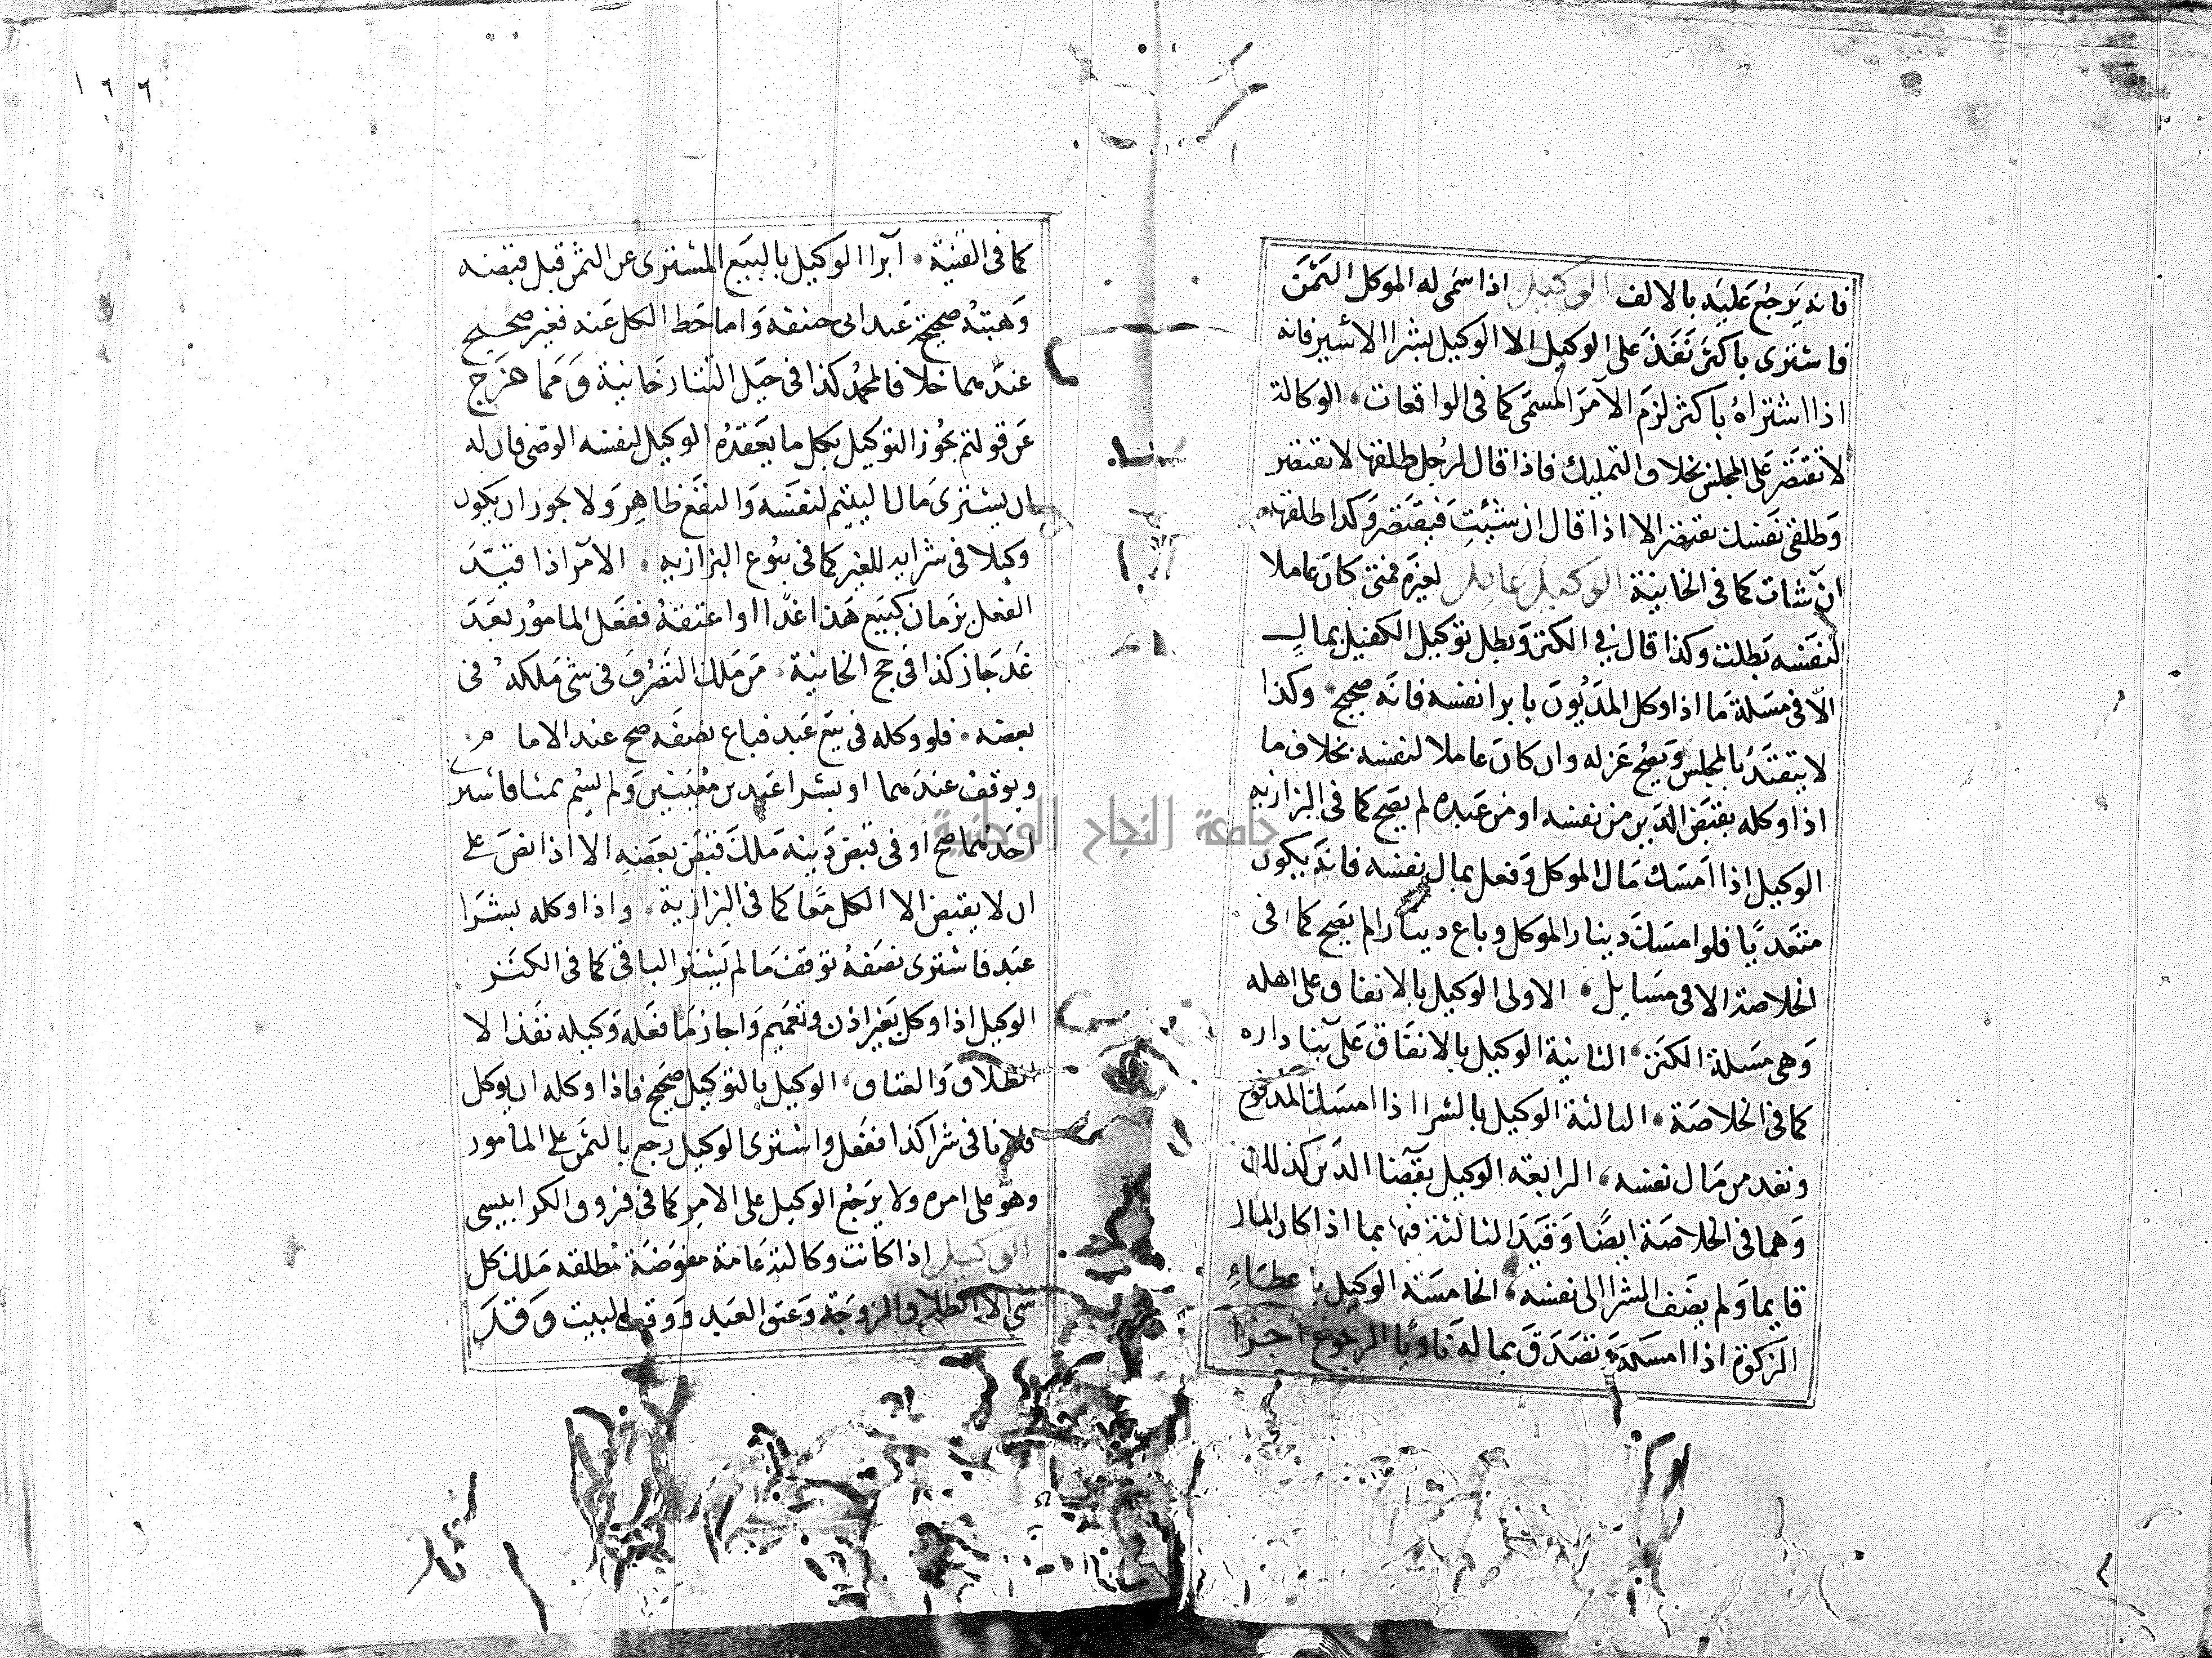 فانه يرجع عليه بالالف الوكيل اذا سمى له الموكل الثمن
فاشترى باكثر نفذ على الوكيل الا الوكيل بشرا الاسير فانه
اذا اشتراه باكثر لزم الآمر المسمى كما فى الواقعات الوكالة
لا تقتصر على المجلس بخلاف التمليك فاذا قال لرجل طلقها لا يقتصر
وطلقى نفسك يقتصر الا اذا قال ان شئت فيقتصر وكذا طلقها
ان شات كما فى الخانية الوكيل عامل لغيره فمتى كان عاملا
لنفسه بطلت وكذا قال في الكنز وبطل توكيل الكفيل بمال
الا فى مسلة ما اذا وكل المديون بابرا نفسه فانه صحيح وكذا
لا يتقيد بالمجلس ويصح عزله وان كان عاملا لنفسه بخلاف ما
اذا وكله بقبض الدين من نفسه او من عبده لم يصح كما فى البزازيه
الوكيل اذا امسك مال الموكل وفعل بمال نفسه فانه يكون
متعديا فلو امسك دينار الموكل وباع دينارا لم يصح كما فى
الخلاصة الا فى مسايل الاولى الوكيل بالانفاق على اهله
وهى مسلة الكنز الثانية الوكيل بالانفاق على بنا داره
كما فى الخلاصة الثالثة الوكيل بالشرا اذا امسك المدفوع
ونقد من مال نفسه الرابعة الوكيل بقضا الدين كذلك
وهما فى الخلاصة ايضا وقيد الثالثة فيها بما اذا كان المال
قايما ولم يضف الشرا الى نفسه الخامسة الوكيل باعطاء
الزكوة اذا امسكه وتصدق بماله ناويا الرجوع اجزا
١٦٦
كما فى القنية ابرا الوكيل بالبيع المشترى عن الثمن قبل قبضه
وهبته صحيحة عند ابى حنيفه واما حط الكل عنه فغير صحيح
عندهما خلافا لمحمد كذا فى حيل التتارخانية ومما خرج
عن قولتم يجوز التوكيل بكل ما يعقده الوكيل لنفسه الوصى فان له
ان يشترى مال اليتيم لنفسه والنفع ظاهر ولا يجوز ان يكون
وكيلا فى شرايه للغير كما فى بيوع البزازيه الآمر اذا قيد
الفعل بزمان كبيع هذا غدا او اعتقه ففعل المامور بعد
غد جاز كذا فى حج الخانية من ملك التصرف فى شى ملكه فى
بعضه فلو وكله فى بيع عبد فباع نصفه صح عند الامام
وتوقف عندهما او بشرا عبدين معينين ولم يسم ثمنا فاشترى
احدهما صح او فى قبض دينه ملك قبض بعضه الا اذا نص على
ان لا يقبض الا الكل معا كما فى البزازية واذا وكله بشرا
عبد فاشترى نصفه توقف ما لم يشتر الباقى كما فى الكنز
الوكيل اذا وكل بغير اذن وتعميم واجاز ما فعله وكيله نفذ الا
الطلاق والعتاق الوكيل بالتوكيل صحيح فاذا وكله ان يوكل
فلانا فى شرا كذا ففعل واشترى الوكيل رجع بالثمن على المامور
وهو على امره ولا يرجع الوكيل على الامر كما فى فروق الكرابيسى
الوكيل اذا كانت وكالته عامة مفوضة مطلقه ملك كل
شى الا الطلاق الزوجة وعتق العبد ووقف البيت وقد
جامعة النجاح الوطنية